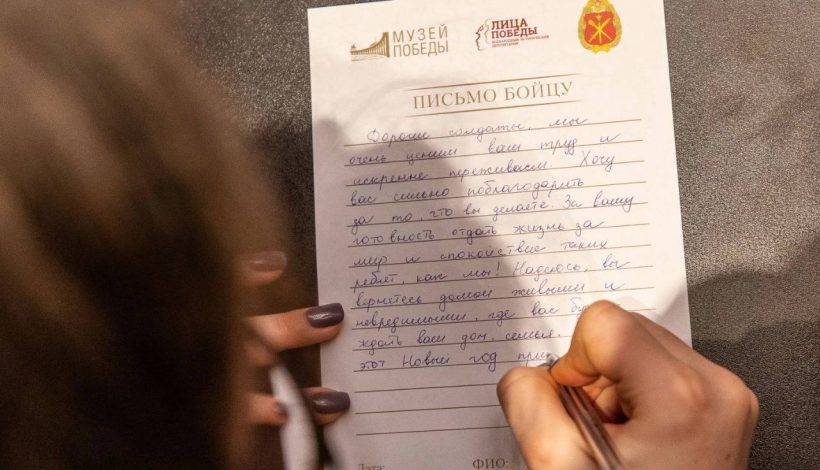 МУЗЕЙ
ПОБЕДЫ
ЛИЦА
ПОБЕДЫ
ПИСЬМО БОЙЦУ
Дорогие солдаты, мы
очень ценим ваш труд и
искренне переживаем. Хочу
вас сильно поблагодарить
за то, что вы делаете. За вашу
готовность отдать жизнь за
мир и спокойствие таких
ребят, как мы! Надеюсь, вы
вернетесь домой живыми и
невредимыми, где вас
ждать ваш дом, семья.
этот Новый год
Дата:
ФИО: